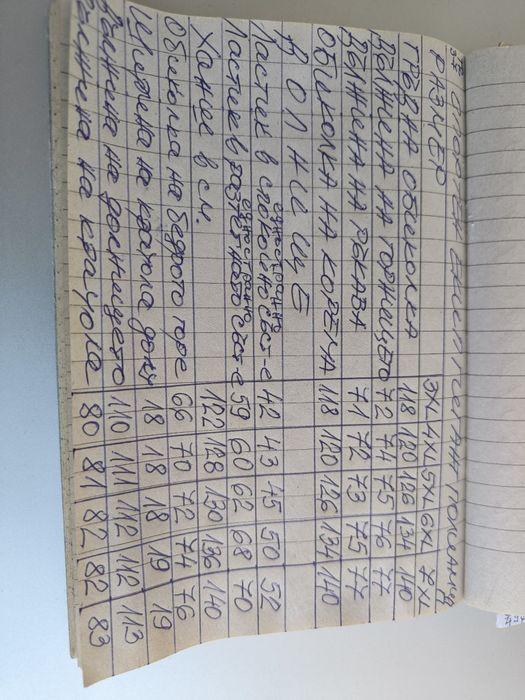 СПОРТЕН ЕКИП
РАЗМЕР 3XL 4XL 5XL 6XL 7XL
ГРЪДНА ОБИКОЛКА 118 120 126 134 140
ДЪЛЖИНА НА ГОРНИЩЕТО 72 74 75 76 77
ДЪЛЖИНА НА РЪКАВА 71 72 73 75 77
ОБИКОЛКА НА КОРЕМА 118 120 126 134 140
ДОЛНИЩЕ
едностранно
Ластик в спокойно със-е 42 43 45 50 52
едностранно
Ластик в разтегнато със-е 59 60 62 68 70
Ханш в см. 122 128 130 136 140
Обиколка на бедрото горе 66 70 72 74 76
Ширина на крачола долу 18 18 18 19 19
Дължина на долнището 110 111 112 112 113
Дължина на крачола 80 81 82 82 83